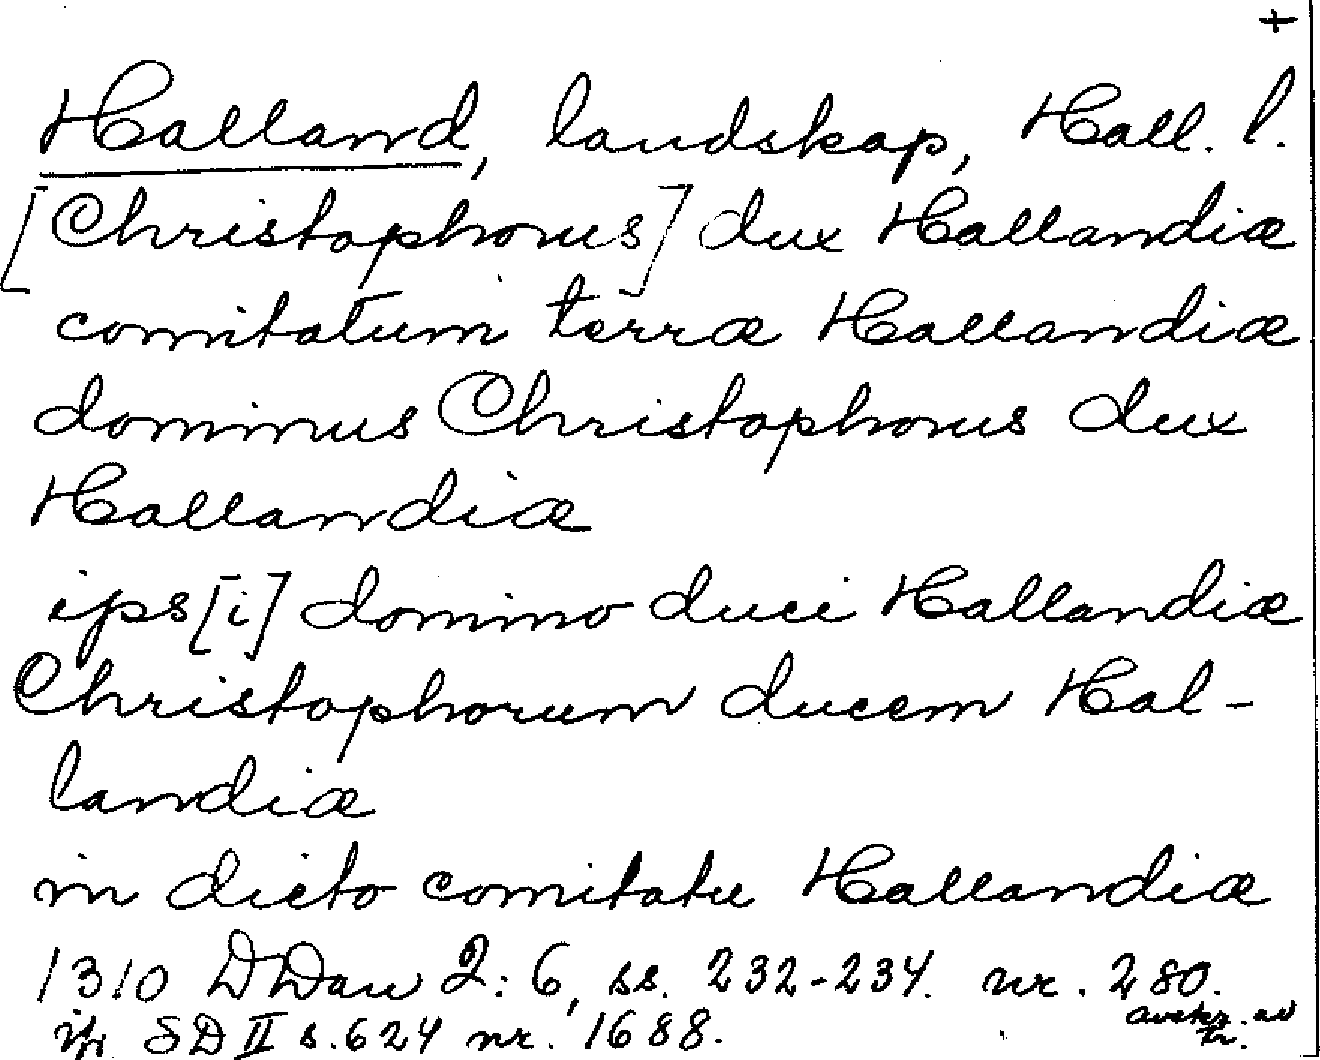 +
Halland, landskap, Hall. l.
[Christophorus] dux Hallandiæ
comitatum terræ Hallandiæ
dominus Christophorus dux
Hallandiæ
ips[i] domino duci Hallandiæ
Christophorum ducem Hal-
landiæ
in dicto comitatu Hallandiæ
1310 DDan 2:6, ss. 232-234. nr. 280.
jfr SD II s. 624 nr. 1688.
avskr. av